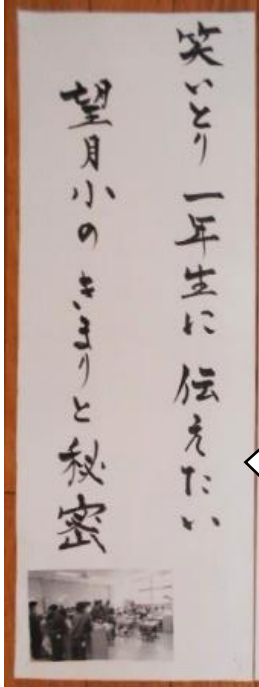 笑いとり 一年生に 伝えたい
望月小の きまりと秘密